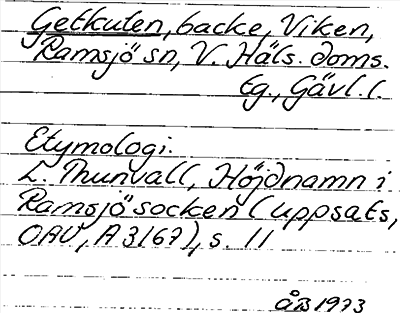 Getkulen, backe, Viken,
Ramsjö sn, V. Häls. doms.
tg., Gävl. l.
Etymologi.
L. Thunvall, Höjdnamn i
Ramsjö socken (uppsats,
OAU, A 3167), s. 11
ÅB 1973